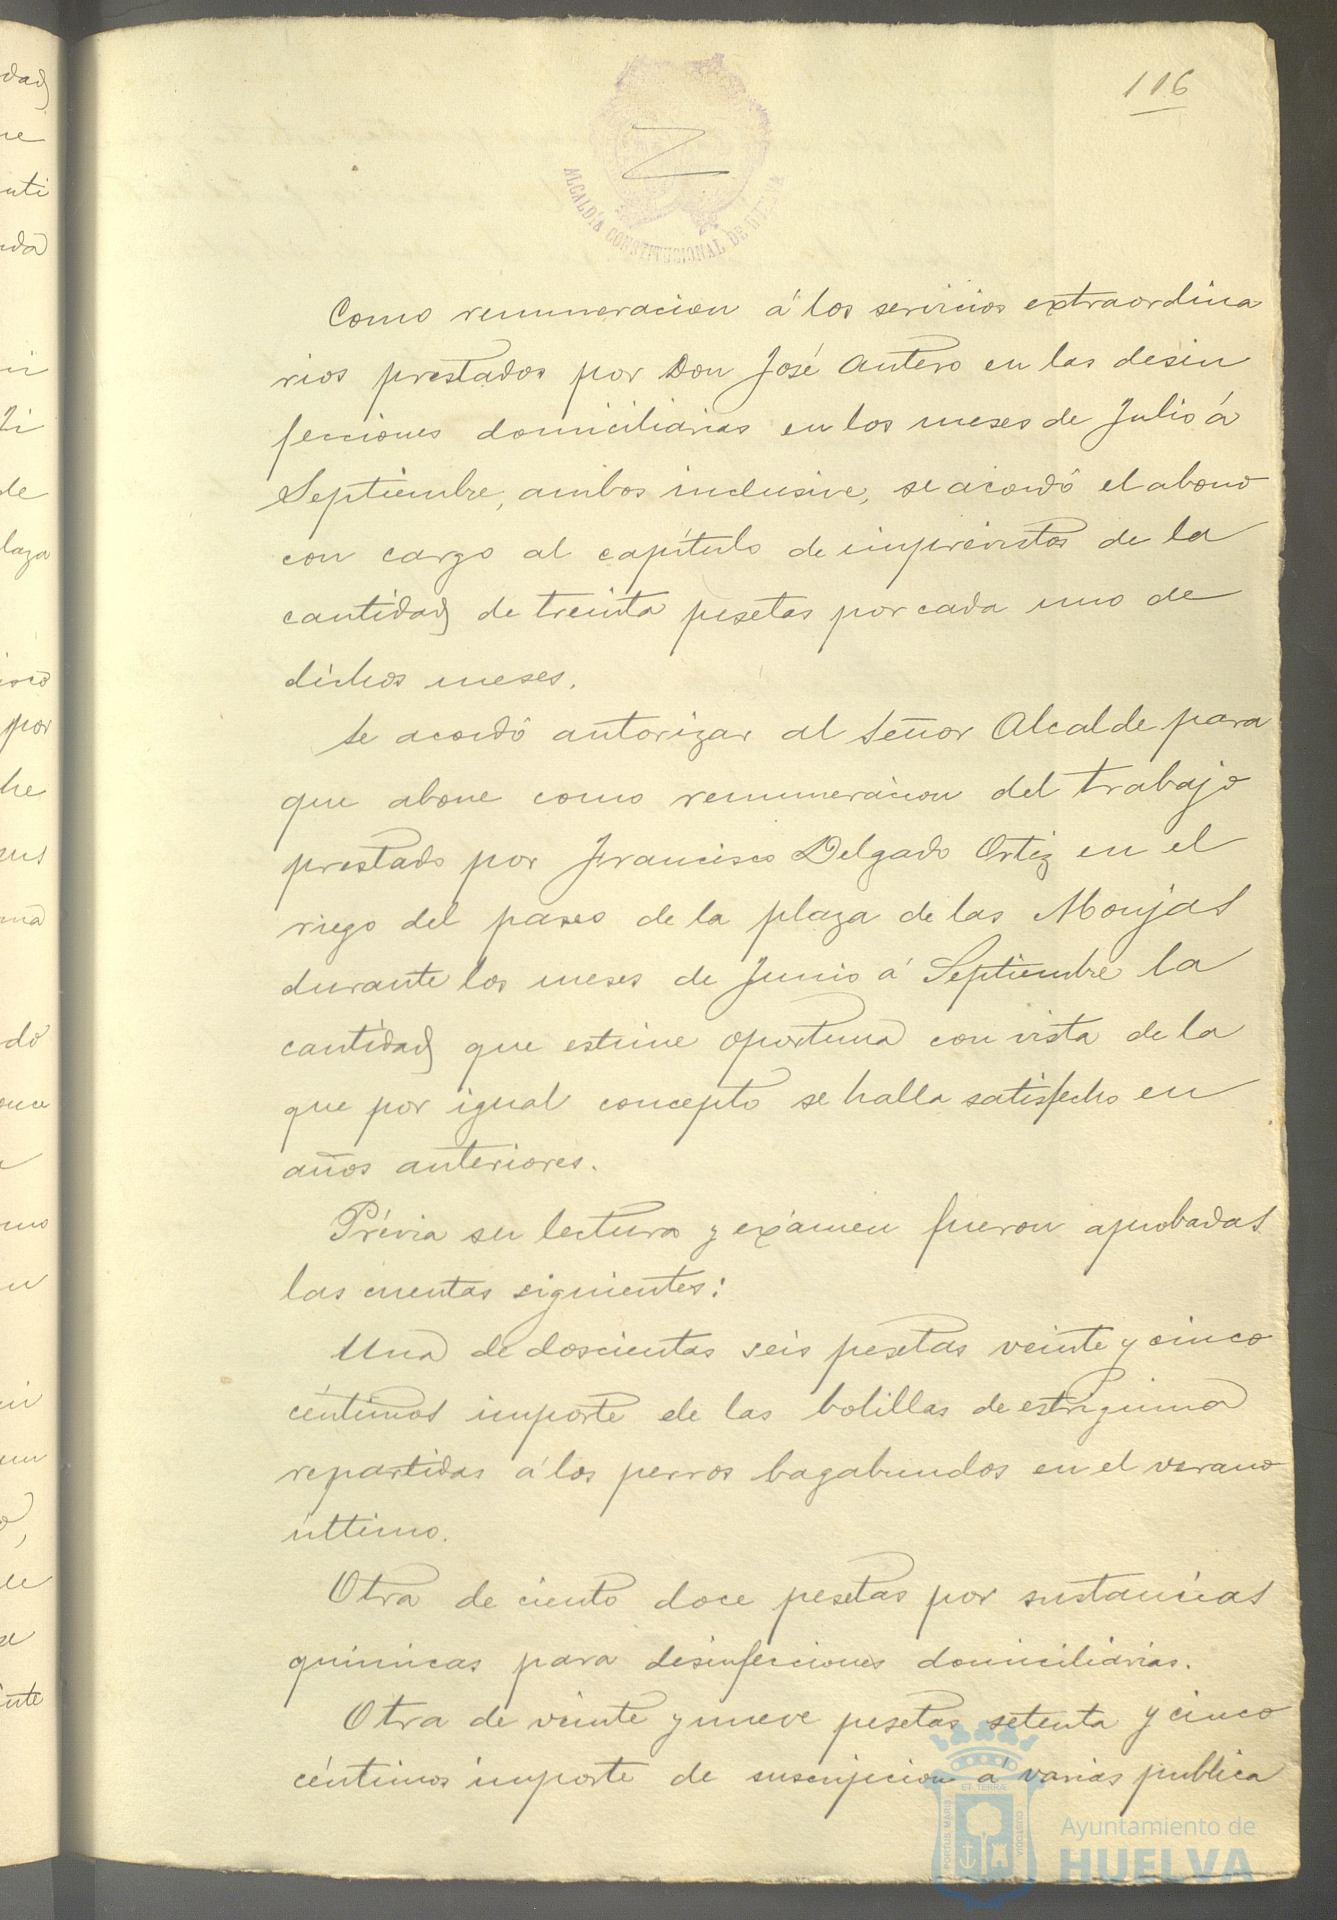 116
ALCALDÍA CONSTITUCIONAL DE HUELVA
Como remuneracion á los servicios extraordina
rios prestados por Don José Antero en las desin
fecciones domiciliarias en los meses de Julio á
Septiembre, ambos inclusive, se acordó el abono
con cargo al capítulo de imprevistos de la
cantidad de treinta pesetas por cada uno de
dichos meses.
Se acordó autorizar al Señor Alcalde para
que abone como remuneracion del trabajo
prestado por Francisco Delgado Ortiz en el
riego del paseo de la plaza de las Monjas
durante los meses de Junio á Septiembre la
cantidad que estime oportuna con vista de la
que por igual concepto se halla satisfecho en
años anteriores.
Prévia su lectura y exámen fueron aprobadas
las cuentas siguientes:
Una de doscientas seis pesetas veinte y cinco
céntimos importe de las bolillas de estriguina
repartidas á los perros bagabundos en el verano
último.
Otra de ciento doce pesetas por sustancias
quimicas para desinfecciones domiciliarias.
Otra de veinte y nueve pesetas setenta y cinco
céntimos importe de suscripcion á varias publica
PORTUS MARIS ET TERRÆ CUSTODIA
Ayuntamiento de
HUELVA